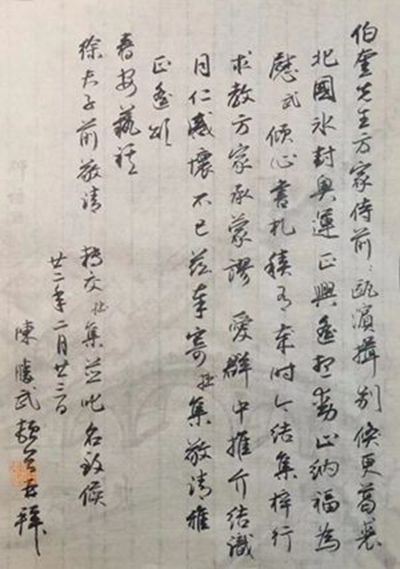 伯奮先生方家侍前：甌濱揖别倏更葛裘
北國冰封奥運正興遙想動止納福為
慰武傾心書札積有年時今結集梓行
求教方家承蒙謬愛群中推介結識
同仁感懷不已茲奉寄拙集敬請雅
正遙頌
春安藝祺
徐夫子前敬請 轉交拙集並叱名致候
廿二年二月廿三日
陳勝武頓首再拜